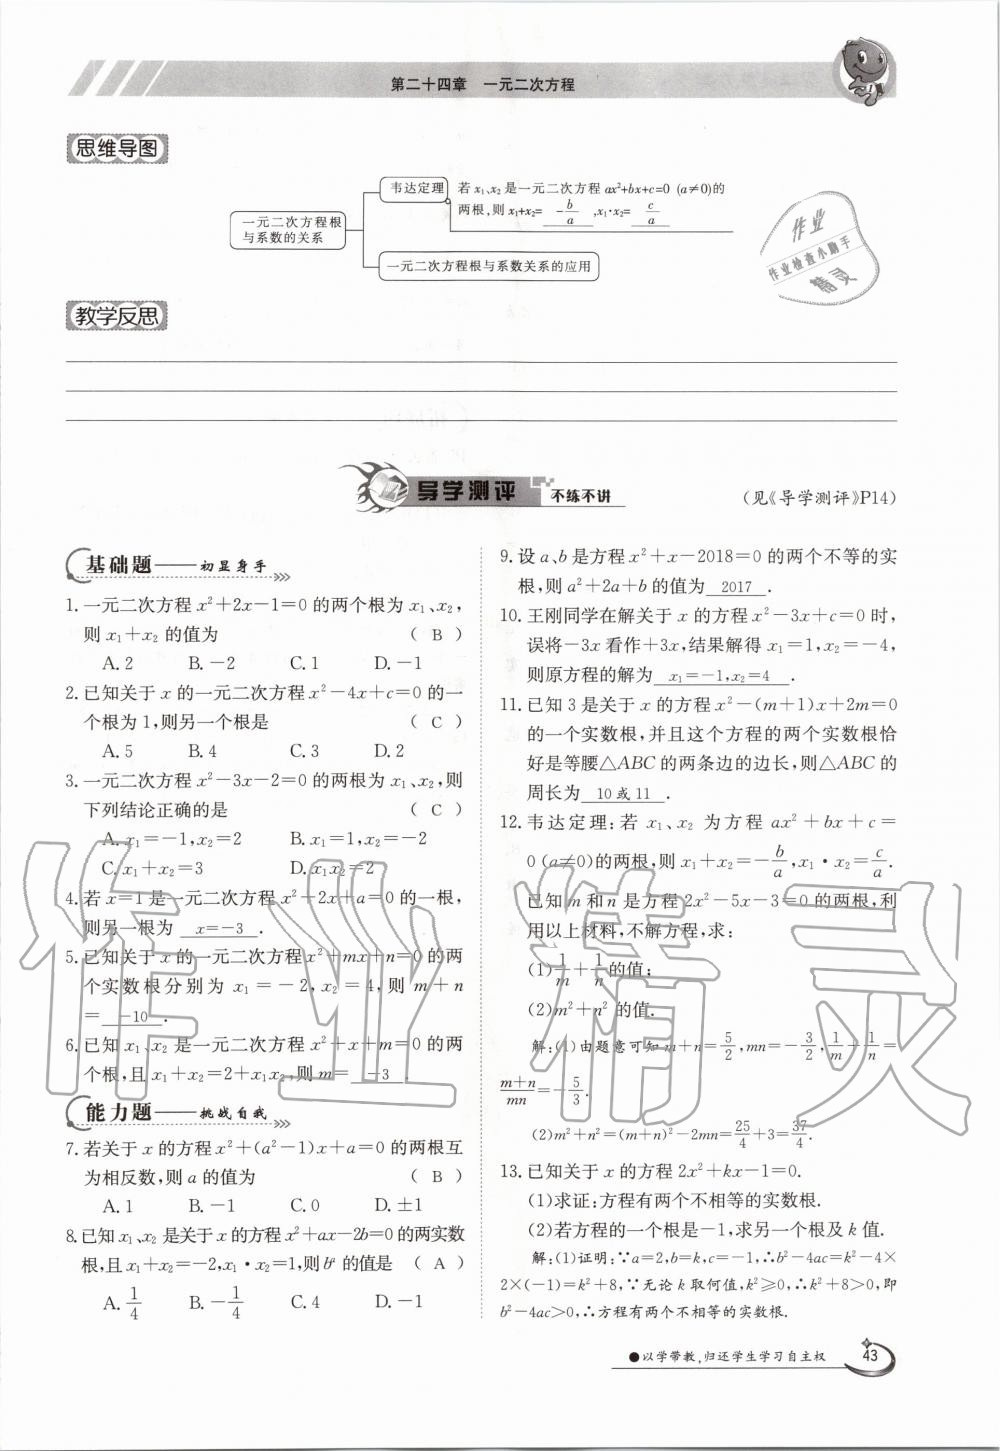 第二十四章 一元二次方程
思维导图
韦达定理
若 x₁、x₂ 是一元二次方程 ax²+bx+c=0 (a≠0)的
两根,则 x₁+x₂= -b/a ,x₁·x₂= c/a
一元二次方程根
与系数的关系
一元二次方程根与系数关系的应用
作业
作业检查小助手
精灵
教学反思
导学测评 不练不讲
(见《导学测评》P14)
基础题——初显身手
1.一元二次方程 x²+2x-1=0 的两个根为 x₁、x₂,
则 x₁+x₂ 的值为 ( B )
A.2 B.-2 C.1 D.-1
2.已知关于 x 的一元二次方程 x²-4x+c=0 的一
个根为 1,则另一个根是 ( C )
A.5 B.4 C.3 D.2
3.一元二次方程 x²-3x-2=0 的两根为 x₁、x₂,则
下列结论正确的是 ( C )
A.x₁=-1,x₂=2 B.x₁=1,x₂=-2
C.x₁+x₂=3 D.x₁x₂=2
4.若 x=1 是一元二次方程 x²+2x+a=0 的一根,
则另一根为 x=-3 .
5.已知关于 x 的一元二次方程 x²+mx+n=0 的两
个实数根分别为 x₁=-2,x₂=4,则 m+n
= -10 .
6.已知 x₁、x₂ 是一元二次方程 x²+x+m=0 的两
个根,且 x₁+x₂=2+x₁x₂,则 m= -3 .
能力题——挑战自我
7.若关于 x 的方程 x²+(a²-1)x+a=0 的两根互
为相反数,则 a 的值为 ( B )
A.1 B.-1 C.0 D.±1
8.已知 x₁、x₂ 是关于 x 的方程 x²+ax-2b=0 的两实数
根,且 x₁+x₂=-2,x₁·x₂=1,则 bᵃ 的值是 ( A )
A.1/4 B.-1/4 C.4 D.-1
9.设 a、b 是方程 x²+x-2018=0 的两个不等的实
根,则 a²+2a+b 的值为 2017 .
10.王刚同学在解关于 x 的方程 x²-3x+c=0 时,
误将-3x 看作+3x,结果解得 x₁=1,x₂=-4,
则原方程的解为 x₁=-1,x₂=4 .
11.已知 3 是关于 x 的方程 x²-(m+1)x+2m=0
的一个实数根,并且这个方程的两个实数根恰
好是等腰△ABC 的两条边的边长,则△ABC 的
周长为 10 或 11 .
12.韦达定理:若 x₁、x₂ 为方程 ax²+bx+c=
0 (a≠0)的两根,则 x₁+x₂=-b/a,x₁·x₂=c/a.
已知 m 和 n 是方程 2x²-5x-3=0 的两根,利
用以上材料,不解方程,求:
(1)1/m+1/n的值;
(2)m²+n² 的值.
解:(1)由题意可知 m+n=5/2,mn=-3/2,1/m+1/n=
(m+n)/mn=-5/3.
(2)m²+n²=(m+n)²-2mn=25/4+3=37/4.
13.已知关于 x 的方程 2x²+kx-1=0.
(1)求证:方程有两个不相等的实数根.
(2)若方程的一个根是-1,求另一个根及 k 值.
解:(1)证明:∵a=2,b=k,c=-1,∴b²-4ac=k²-4×
2×(-1)=k²+8,∵无论 k 取何值,k²≥0,∴k²+8>0,即
b²-4ac>0,∴方程有两个不相等的实数根.
●以学带教,归还学生学习自主权
43
作业精灵